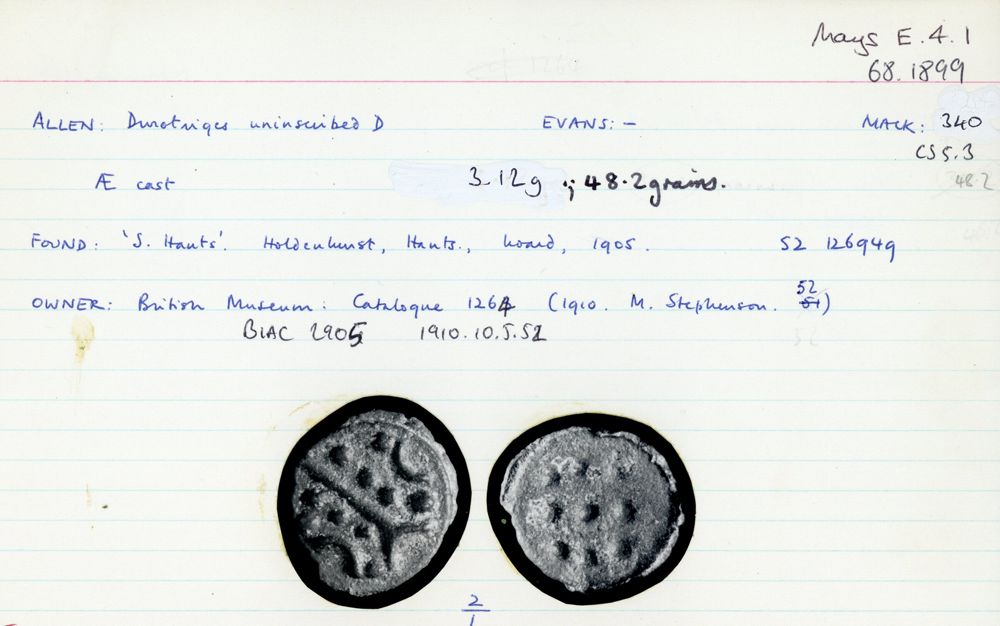 Mays E.4.1
68.1899
ALLEN: Durotriges uninscribed D EVANS: - MACK: 340
CS5.3
Æ cast 3.12g ; 48.2 grains. 48.2
FOUND: 'S. Hants'. Holdenhurst, Hants., hoard, 1905. SZ 126949
OWNER: British Museum: Catalogue 1264 (1910. M. Stephenson. 52)
BIAC 2905 1910.10.5.52
2
1